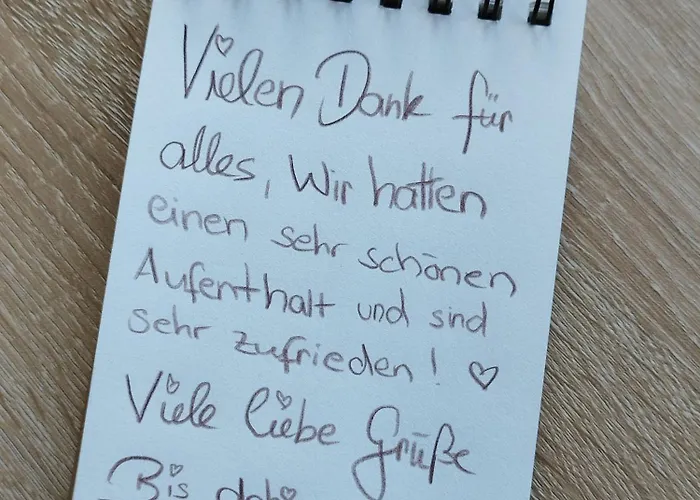 Vielen Dank für
alles, Wir hatten
einen sehr schönen
Aufenthalt und sind
sehr zufrieden! ♡
Viele liebe Grüße
Bis